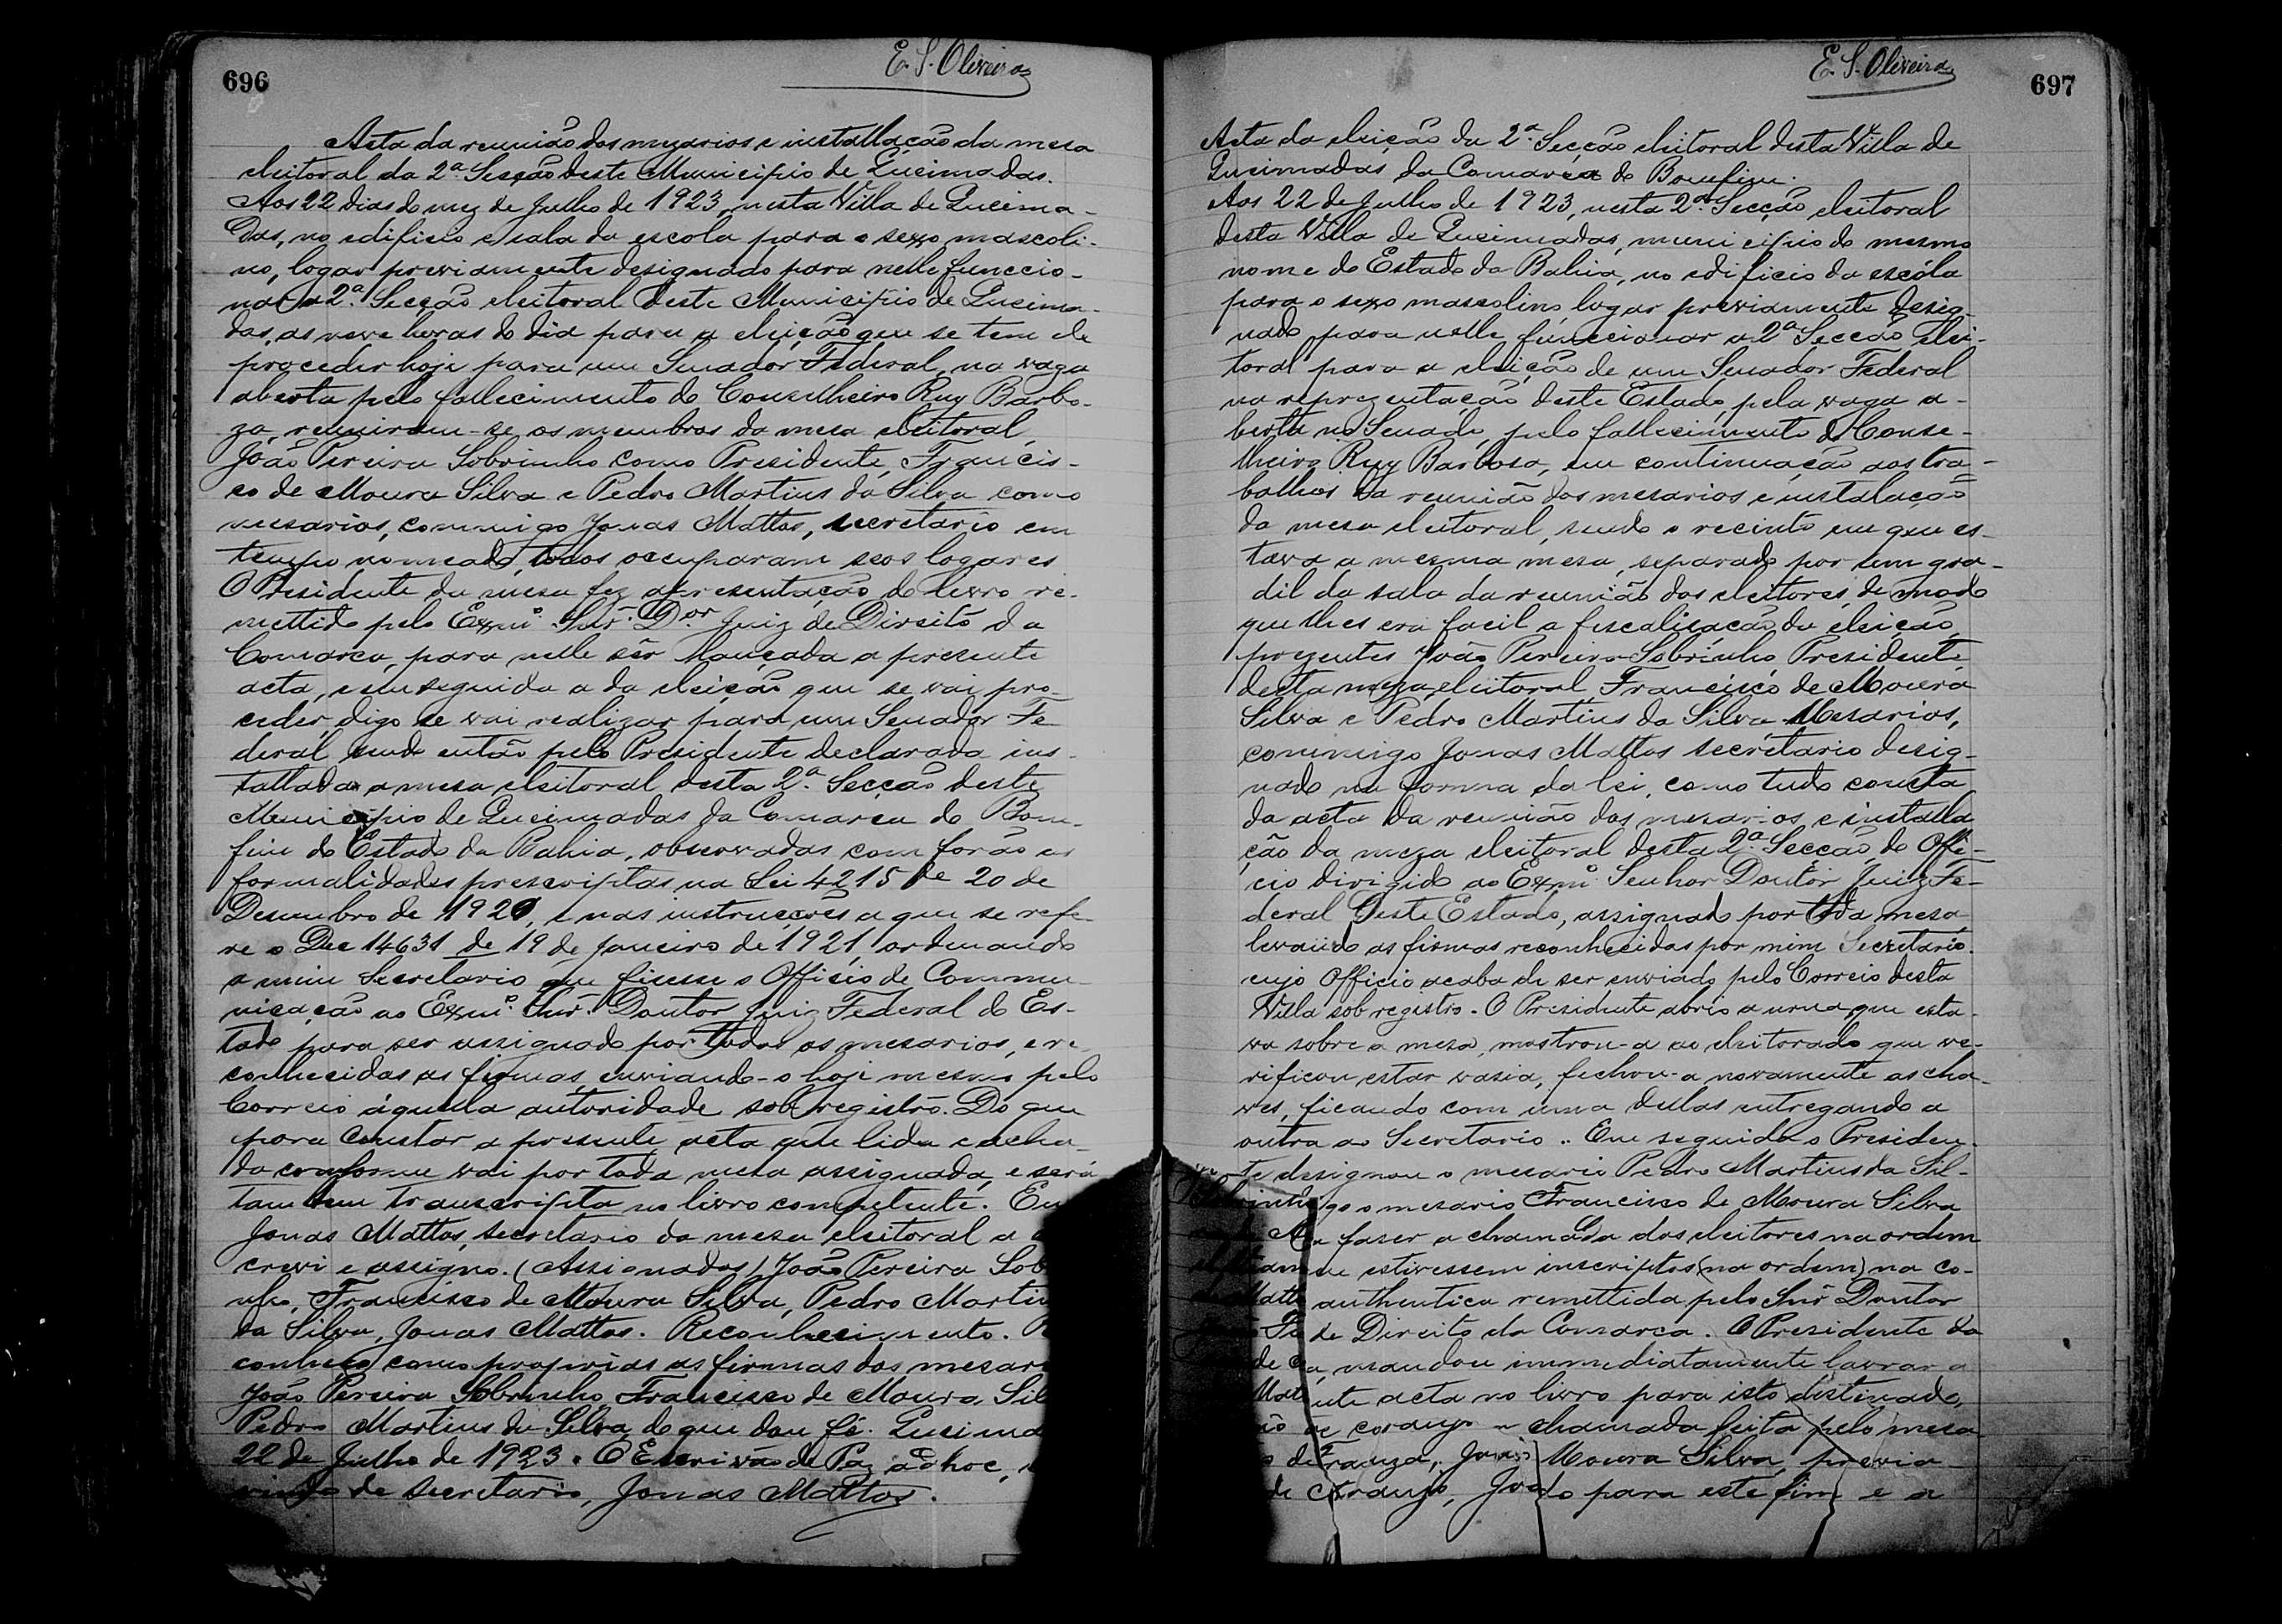 696
E. S. Oliveira
Acta da reunião dos mezarios e installação da mesa
eleitoral da 2ª Secção deste Municipio de Queimadas.
Aos 22 dias do mez de Julho de 1923, nesta Villa de Queima-
das, no edificio e sala da escola para o sexo mascoli-
no, logar previamente designado para nelle funccio-
nar a 2ª Secção eleitoral deste Municipio de Queima-
das, as nove horas do dia para a eleição que se tem de
proceder hoje para um Senador Federal, na vaga
aberta pelo fallecimento do Conselheiro Ruy Barbo-
za, reuniram-se os membros da mesa eleitoral,
João Pereira Sobrinho como Presidente, Francis-
co de Moura Silva e Pedro Martins da Silva como
mesarios, commigo Jonas Mattos, secretario em
tempo nomeado, todos occuparam seos logares
O Presidente da mesa fez apresentação do livro re-
mettido pelo Exmº. Snr. Dor Juiz de Direito da
Comarca, para nelle sêr lançada a presente
acta, e em seguida a da eleição que se vai pro-
ceder, digo se vai realizar para um Senador Fe
deral, sendo então pelo Presidente declarada ins-
tallada a mesa eleitoral desta 2ª. Secção deste
Municipio de Queimadas da Comarca do Bom-
fim do Estado da Bahia, observadas com forão as
formalidades prescriptas na Lei 4215 de 20 de
Desembro de 1920, e nas instrucções a que se refe-
re o Dec 14631 de 19 de Janeiro de 1921, ordenando
a mim Secretario que fisesse o Officio de Commu-
nicação ao Exmº. Snr. Doutor Juiz Federal do Es-
tado para ser assignado por todos os mesarios, e re
conhecidas as firmas, enviando-o hoje mesmo pelo
Correio áquella autoridade sob registro. Do que
para constar a presente acta que lida e acha-
da conforme vai por toda mesa assignada, e será
tambem transcripta no livro competente. Eu
Jonas Mattos, secretario da mesa eleitoral a
crevi e assigno. (Assignados) João Pereira Sob
nho, Francisco de Moura Silva, Pedro Martin
da Silva, Jonas Mattos. Reconhecimento. R
conheço como proprias as firmas dos mesar
João Pereira Sobrinho, Francisco de Moura Sil
Pedro Martins da Silva, do que dou fé. Queima
22 de Julho de 1923. O Escrivão de Paz ad hoc,
vindo de secretario, Jonas Mattos.
E. S. Oliveira
697
Acta da eleição da 2ª. Secção eleitoral desta Villa de
Queimadas da Comarca do Bomfim.
Aos 22 de Julho de 1923, nesta 2ª Secção eleitoral
desta Villa de Queimadas, municipio do mesmo
nome do Estado da Bahia, no edificio da escóla
para o sexo mascolino, logar previamente desig-
nado para nelle funccionar a 2ª Secção elei-
toral para a eleição de um Senador Federal
na reprezentação deste Estado, pela vaga a-
berta no Senado, pelo fallecimento do Conse-
lheiro Ruy Barbosa, em continuação aos tra-
balhos da reunião dos mesarios e instalação
da mesa eleitoral, sendo o recinto em que es-
tava a mesma mesa, separado por um gra-
dil da sala da reunião dos eleitores, de modo
que lhes era facil a fiscalisação da eleição,
prezentes João Pereira Sobrinho Presidente
desta meza eleitoral, Francisco de Moura
Silva e Pedro Martins da Silva Mesarios,
commigo Jonas Mattos secretario desig-
nado na forma da lei, como tudo consta
da acta da reunião dos mesarios e installa
ção da meza eleitoral desta 2ª. Secção, do Offi-
cio dirigido ao Exmº Senhor Doutor Juiz Fe-
deral deste Estado, assignado por toda mesa
levando as firmas reconhecidas por mim Secretario.
cujo Officio acaba de ser enviado pelo Correio desta
Villa sob registro. O Presidente abrio a urna que esta-
va sobre a mesa, mostrou-a ao eleitorado que ve-
rificou estar vasia, fechou-a novamente as cha-
ves, ficando com uma dellas entregando a
outra ao Secretario. Em seguida o Presiden-
te designou o mesario Pedro Martins da Sil-
go o mesario Francisco de Moura Silva
faser a chamada dos eleitores na ordem
ue estivessem inscriptos (na ordem) na co-
authentica remettida pelo Snr Doutor
de Direito da Comarca. O Presidente da
a, mandou immediatamente lavrar a
nte acta no livro para isto destinado,
chamada feita pelo mesa
Moura Silva, previa-
do para este fim e a